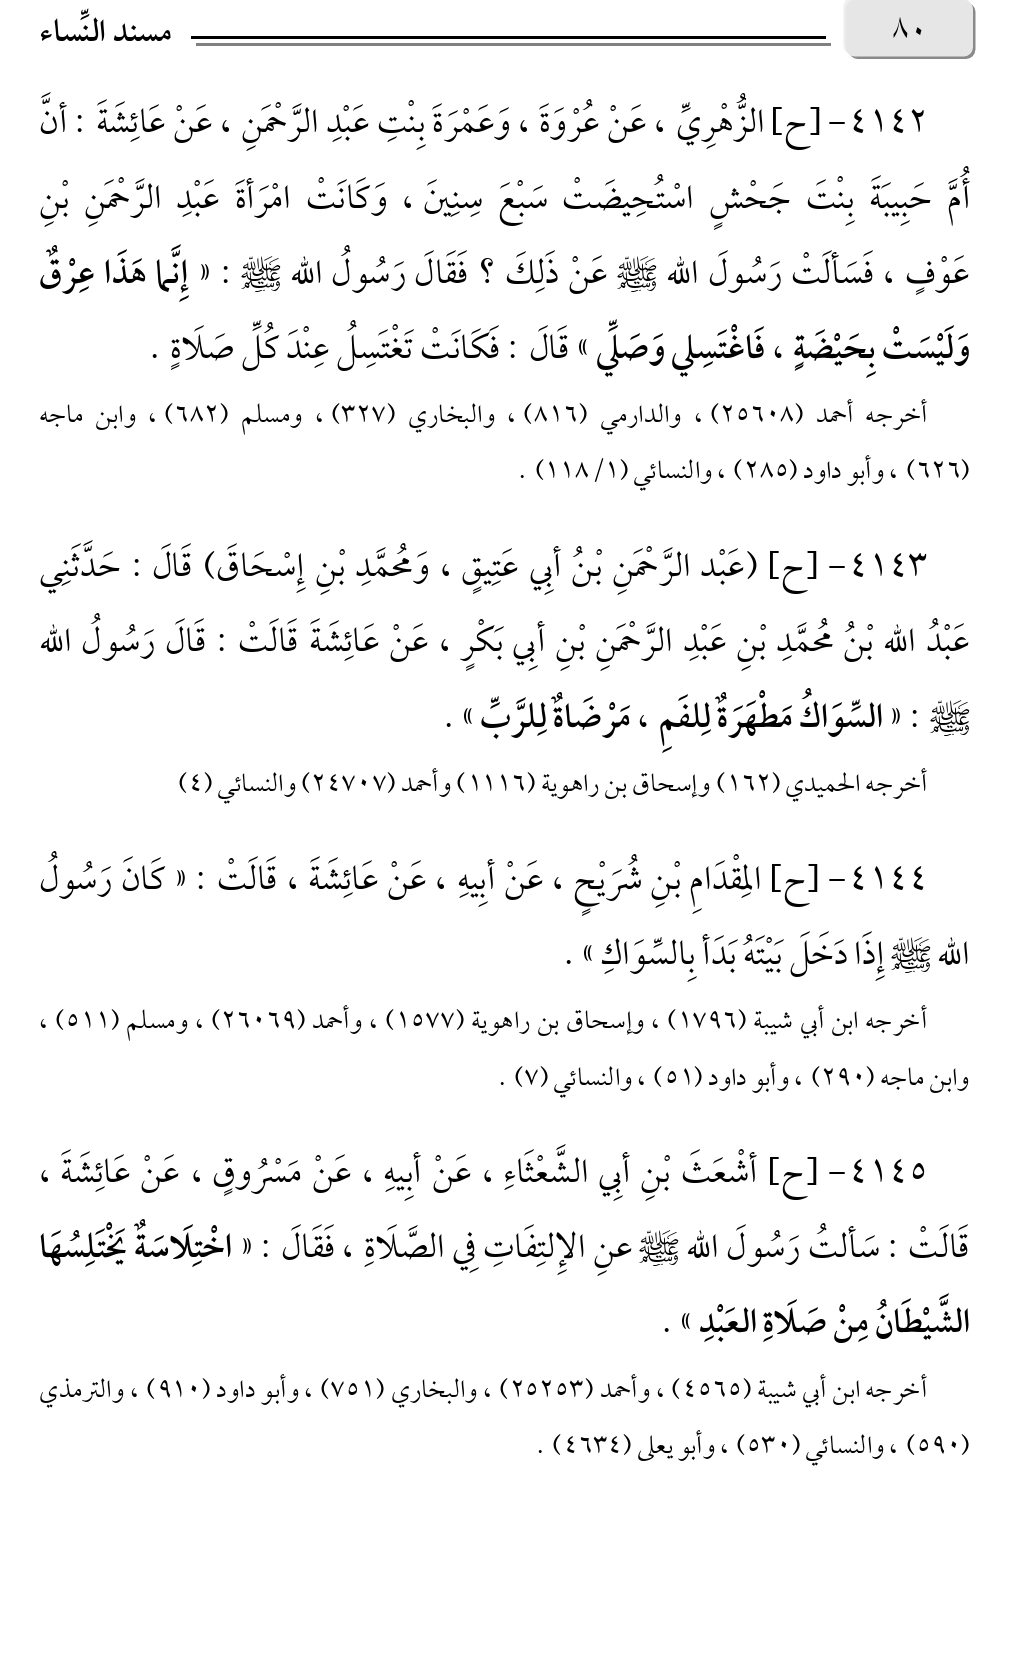 ٨٠ مسند النِّساء
٤١٤٢- [ح] الزُّهْرِيِّ ، عَنْ عُرْوَةَ ، وَعَمْرَةَ بِنْتِ عَبْدِ الرَّحْمَنِ ، عَنْ عَائِشَةَ : أنَّ
أُمَّ حَبِيبَةَ بِنْتَ جَحْشٍ اسْتُحِيضَتْ سَبْعَ سِنِينَ ، وَكَانَتْ امْرَأةَ عَبْدِ الرَّحْمَنِ بْنِ
عَوْفٍ ، فَسَألَتْ رَسُولَ الله ﷺ عَنْ ذَلِكَ ؟ فَقَالَ رَسُولُ الله ﷺ : « إِنَّما هَذَا عِرْقٌ
وَلَيْسَتْ بِحَيْضَةٍ ، فَاغْتَسِلي وَصَلِّي » قَالَ : فَكَانَتْ تَغْتَسِلُ عِنْدَ كُلِّ صَلَاةٍ .
أخرجه أحمد (٢٥٦٠٨) ، والدارمي (٨١٦) ، والبخاري (٣٢٧) ، ومسلم (٦٨٢) ، وابن ماجه
(٦٢٦) ، وأبو داود (٢٨٥) ، والنسائي (١/ ١١٨) .
٤١٤٣- [ح] (عَبْد الرَّحْمَنِ بْنُ أبِي عَتِيقٍ ، وَمُحمَّدِ بْنِ إِسْحَاقَ) قَالَ : حَدَّثَنِي
عَبْدُ الله بْنُ مُحمَّدِ بْنِ عَبْدِ الرَّحْمَنِ بْنِ أبِي بَكْرٍ ، عَنْ عَائِشَةَ قَالَتْ : قَالَ رَسُولُ الله
ﷺ : « السِّوَاكُ مَطْهَرَةٌ لِلفَمِ ، مَرْضَاةٌ لِلرَّبِّ » .
أخرجه الحميدي (١٦٢) وإسحاق بن راهوية (١١١٦) وأحمد (٢٤٧٠٧) والنسائي (٤)
٤١٤٤- [ح] المِقْدَامِ بْنِ شُرَيْحٍ ، عَنْ أبِيهِ ، عَنْ عَائِشَةَ ، قَالَتْ : « كَانَ رَسُولُ
الله ﷺ إِذَا دَخَلَ بَيْتَهُ بَدَأ بِالسِّوَاكِ » .
أخرجه ابن أبي شيبة (١٧٩٦) ، وإسحاق بن راهوية (١٥٧٧) ، وأحمد (٢٦٠٦٩) ، ومسلم (٥١١) ،
وابن ماجه (٢٩٠) ، وأبو داود (٥١) ، والنسائي (٧) .
٤١٤٥- [ح] أشْعَثَ بْنِ أبِي الشَّعْثَاءِ ، عَنْ أبِيهِ ، عَنْ مَسْرُوقٍ ، عَنْ عَائِشَةَ ،
قَالَتْ : سَألتُ رَسُولَ الله ﷺ عنِ الإِلتِفَاتِ فِي الصَّلَاةِ ، فَقَالَ : « اخْتِلَاسَةٌ يَخْتَلِسُهَا
الشَّيْطَانُ مِنْ صَلَاةِ العَبْدِ » .
أخرجه ابن أبي شيبة (٤٥٦٥) ، وأحمد (٢٥٢٥٣) ، والبخاري (٧٥١) ، وأبو داود (٩١٠) ، والترمذي
(٥٩٠) ، والنسائي (٥٣٠) ، وأبو يعلى (٤٦٣٤) .